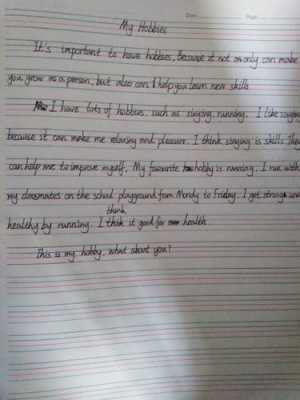 Date Page
My Hobbies
It's important to have hobbies, Because it not only can make
you grow as a person, but also can help you learn new skills
I have lots of hobbies. such as singing, running. I like singing
because it can make me relaxing and pleasure. I think singing is skills. They
can help me to improve myself. My favourite hobby is running. I run with
my classmates on the school playground from Monday to Friday. I get strong and
think
healthy by running. I think it good for health
This is my hobby, what about you?